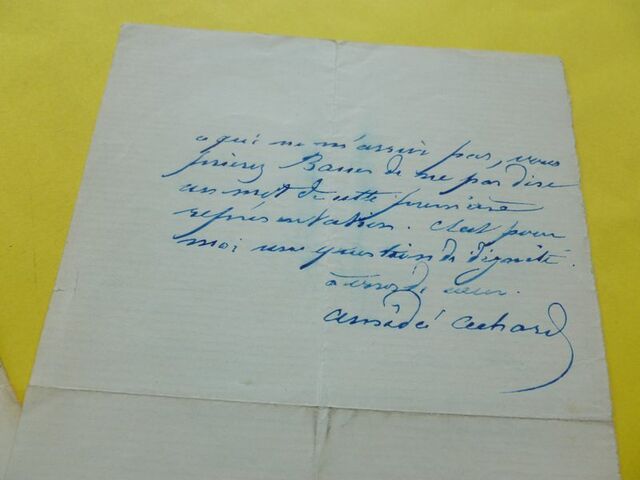 o qui ne m'arrive pas, vous
prierez de ne pas dire
un mot de cette première
représentation. C'est pour
moi une question de dignité.
à vous de cœur.
Amédée Achard